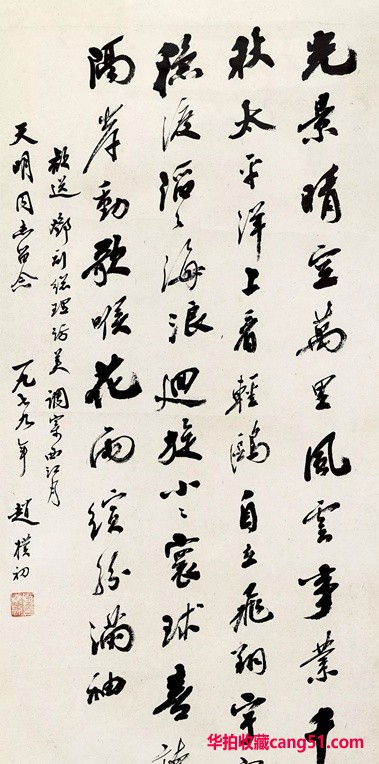 光景晴空萬里風雲事業千
秋太平洋上看輕鷗自在飛翔宇
穩渡滔〻海浪迴旋小〻寰球喜
隔岸動歌喉花雨繽紛滿袖
歡送鄧副總理訪美調寄西江月
天明同志留念 一九七九年 趙樸初
华拍收藏cang51.com